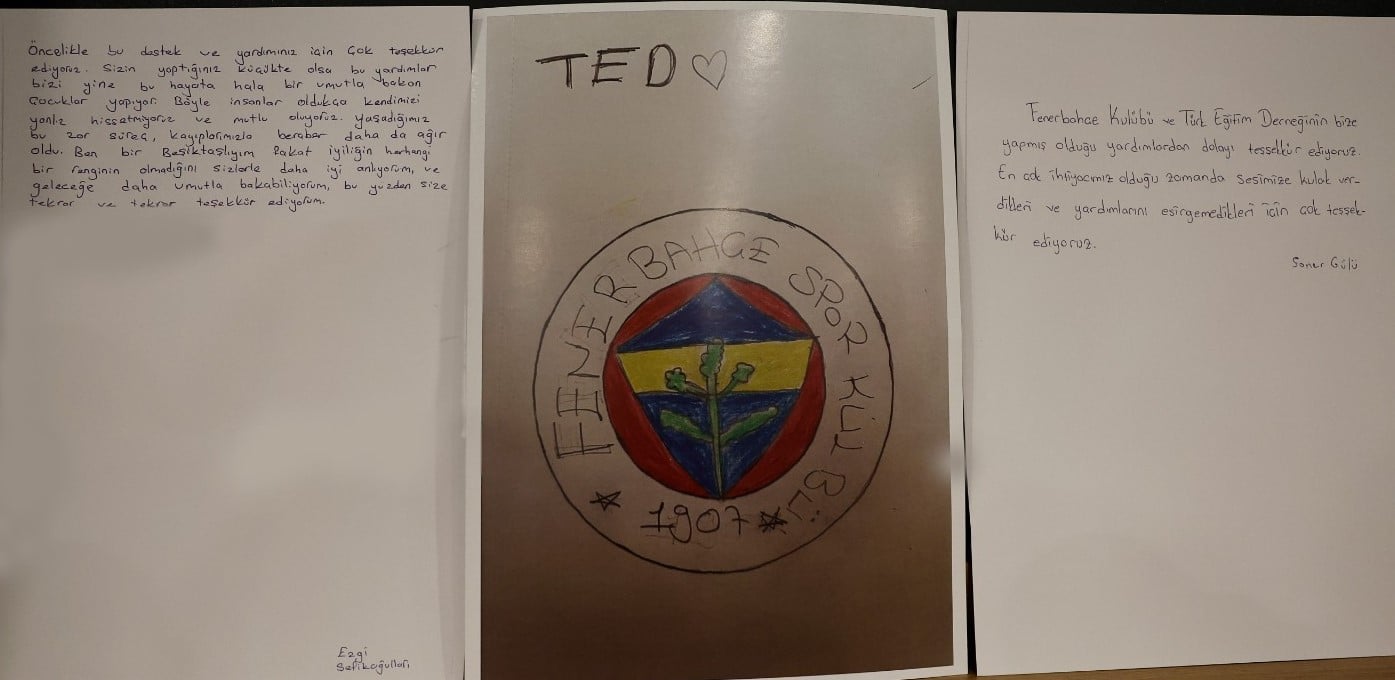 Öncelikle bu destek ve yardımınız için çok teşekkür
ediyoruz. Sizin yaptığınız küçükte olsa bu yardımlar
bizi yine bu hayata hala bir umutla bakan
Çocuklar yapıyor. Böyle insanlar oldukça kendimizi
yanlız hissetmiyoruz ve mutlu oluyoruz. Yaşadığımız
bu zor süreç, kayıplarımızla beraber daha da ağır
oldu. Ben bir Beşiktaşlıyım fakat iyiliğin herhangi
bir renginin olmadığını sizlerle daha iyi anlıyorum, ve
geleceğe daha umutla bakabiliyorum, bu yüzden size
tekrar ve tekrar teşekkür ediyorum.
Ezgi
TED
FENERBAHÇE SPOR KULÜBÜ
1907
Fenerbahçe Kulübü ve Türk Eğitim Derneğinin bize
yapmış olduğu yardımlardan dolayı tessekkür ediyoruz.
En çok ihtiyacımız olduğu zamanda sesimize kulak ver-
dikleri ve yardımlarını esirgemedikleri için çok tessek-
kür ediyoruz.
Soner Gülü